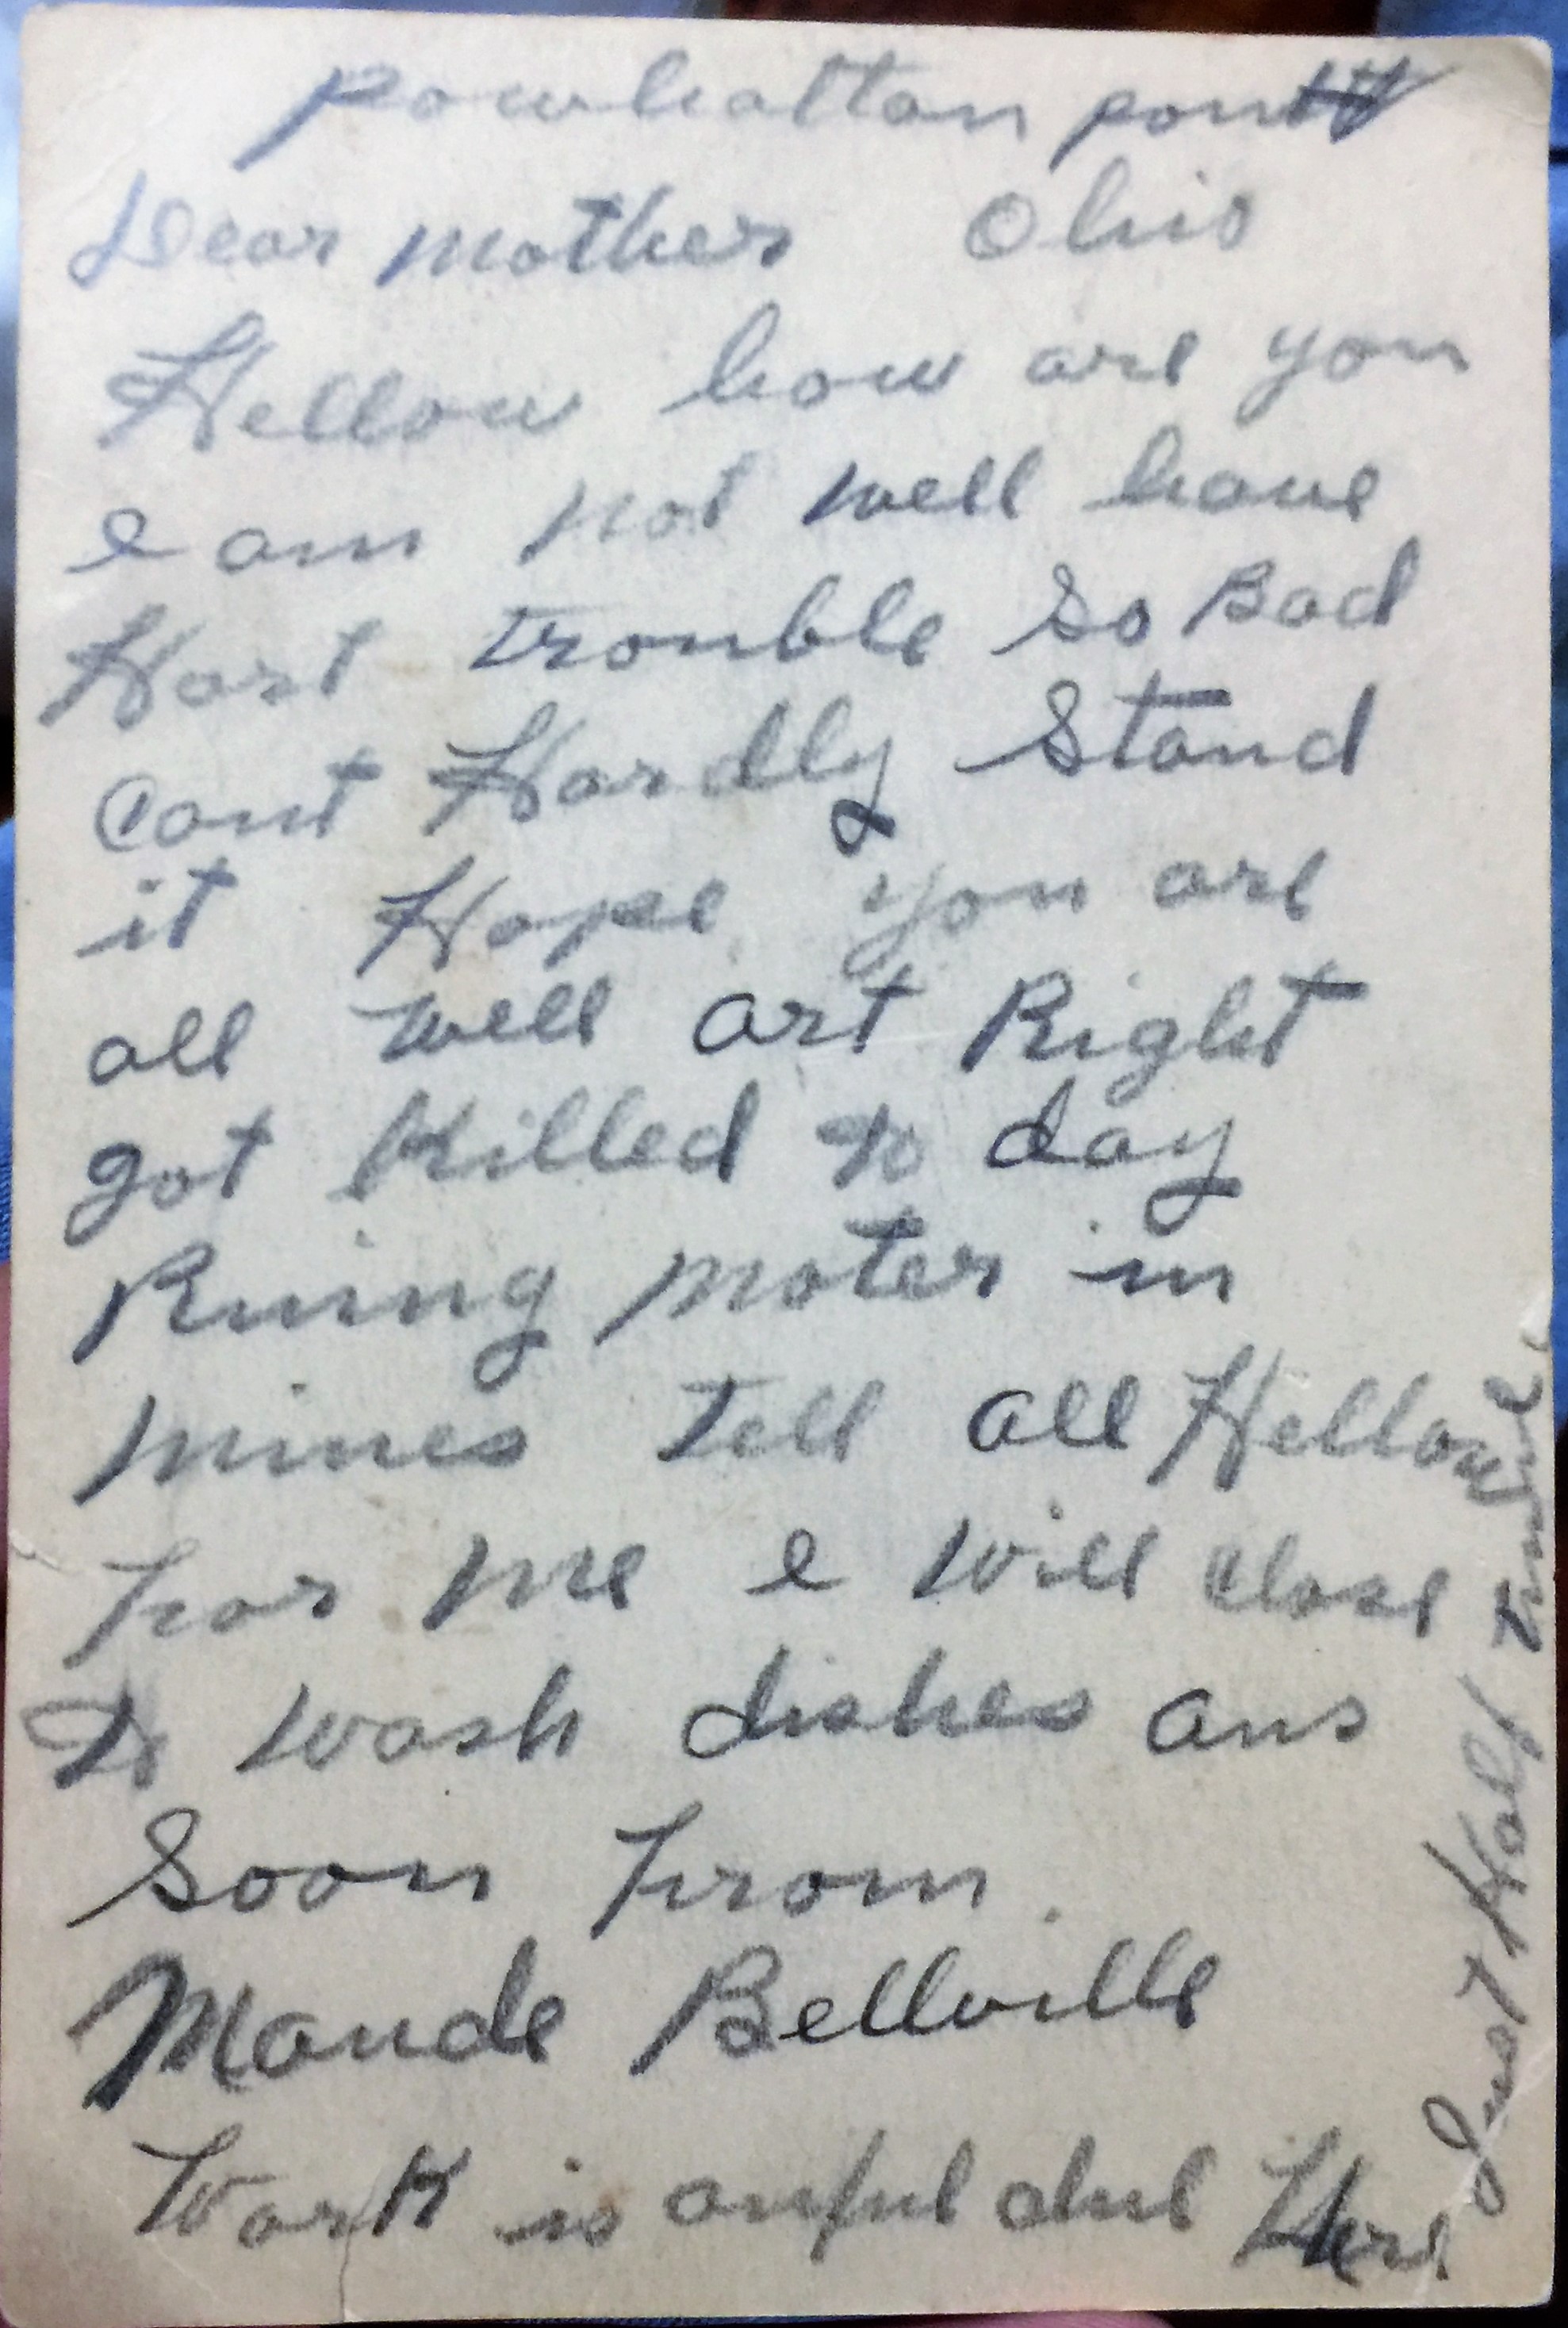 Powhattan point
Dear mother Ohio
Hellow how are you
I am not well have
Hart trouble so Bad
Cant Hardly Stand
it Hope you are
all well art Right
got Killed to day
Runing moter in
mines tell all Hellow
For me I will close
to wash dishes ans
Soon From.
Maude Bellville
Work is awful dul Here
Just Half time